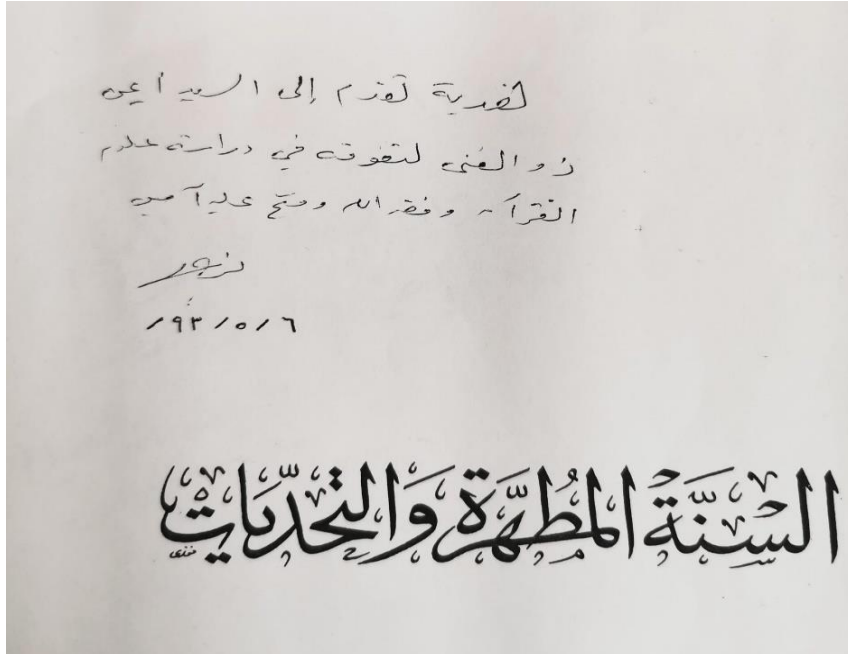 لهدية تقدم إلى السيد أعين
ذو الغنى لتفوقه في دراسة علوم
القرآن وفقه الله وفتح عليه آمين
٦ / ٥ / ٩٣ /
السنة المطهرة والتحديات